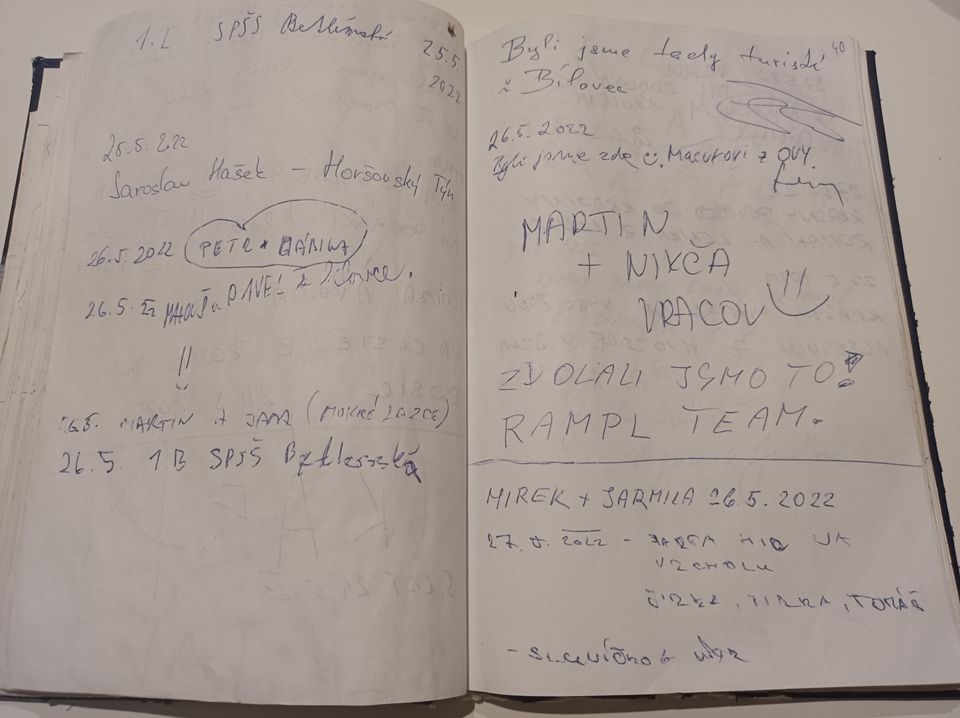 1.L SPŠS Betlémská 25.5.
2022
25.5.2022
Jaroslav Hašek – Horšovský Týn
26.5.2022 PETR
26.5.22
26.5. MARTIN + JANA (MOKRÉ LAZCE)
26.5. 1B SPŠS Betlémská
40
Byli jsme tady turisté
z Bílovec
26.5.2022
Byli jsme zde Macurovi z OVY.
MARTIN
+ NIKČA
VRACOV
ZDOLALI JSMO TO!
RAMPL TEAM.
MIREK + JARMILA 26.5.2022
27.5.2022 –
VRCHOLU
JIRKA, TOMÁŠ